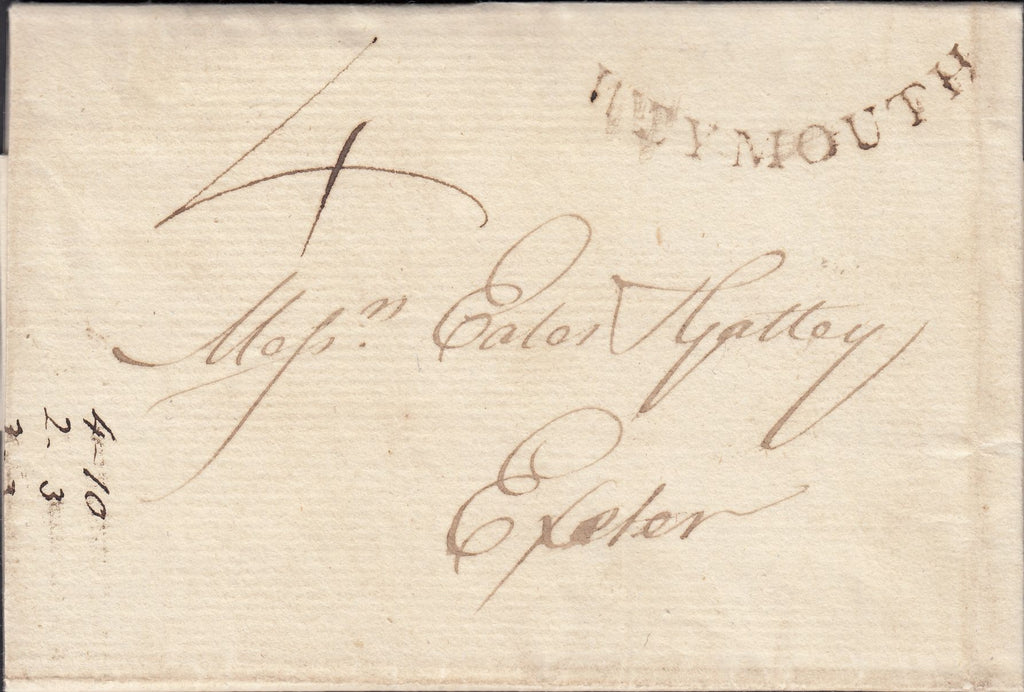 WEYMOUTH
4
Messrs. Eales & Gattey
Exeter
4-10
2-3